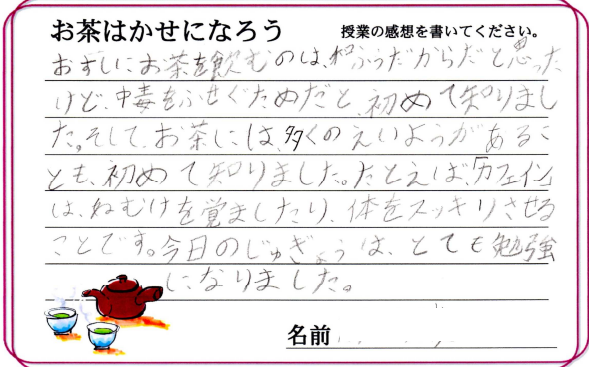 お茶はかせになろう 授業の感想を書いてください。
おすしにお茶を飲むのは、和ふうだからだと思った
けど、中毒をふせぐためだと、初めて知りまし
た。そして、お茶には、多くのえいようがあるこ
とも、初めて知りました。たとえば、「カフェイン」
は、ねむけを覚ましたり、体をスッキリさせる
ことです。今日のじゅぎょうは、とても勉強
になりました。
名前